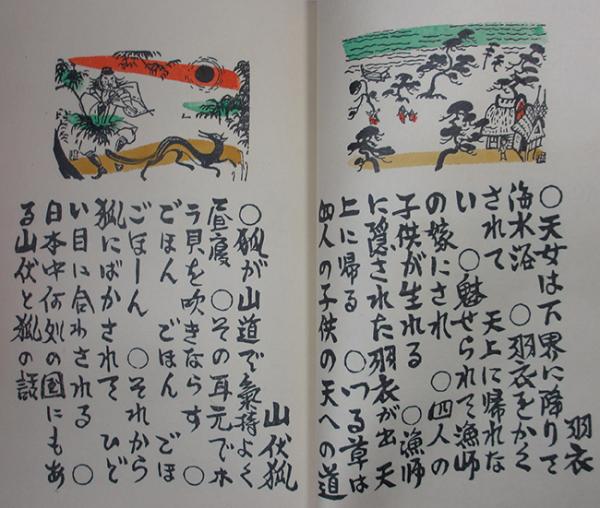 羽衣
〇天女は下界に降りて
海水浴 〇羽衣をかく
されて 天上に帰れな
い 〇魅せられて漁師
の嫁にされ 〇四人の
子供が生れる 〇漁師
に隠された羽衣が出 天
上に帰る 〇つる草は
四人の子供の天への道
山伏狐
〇狐が山道で氣持よく
昼寝 〇その耳元でホ
ラ貝を吹きならす 〇
ごほん ごほん ごほ
ごほーん 〇それから
狐にばかされて ひど
い目に合わされる 〇
日本中何処の国にもあ
る山伏と狐の話